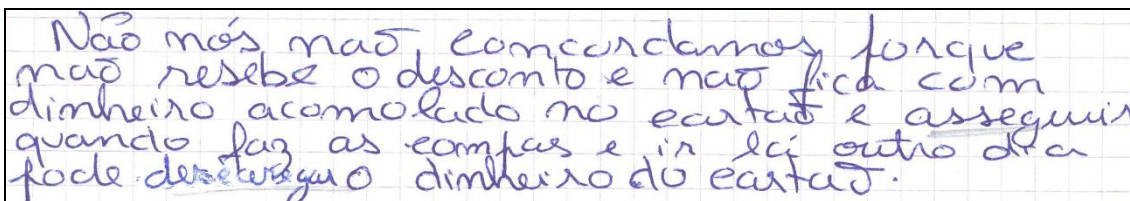 Não nós, naõ, concordamos, porque
naõ resebe o desconto e naõ fica com
dinheiro acomolado no cartaõ e asseguir
quando faz as compas e ir lá outro dia
pode o dinheiro do cartaõ.